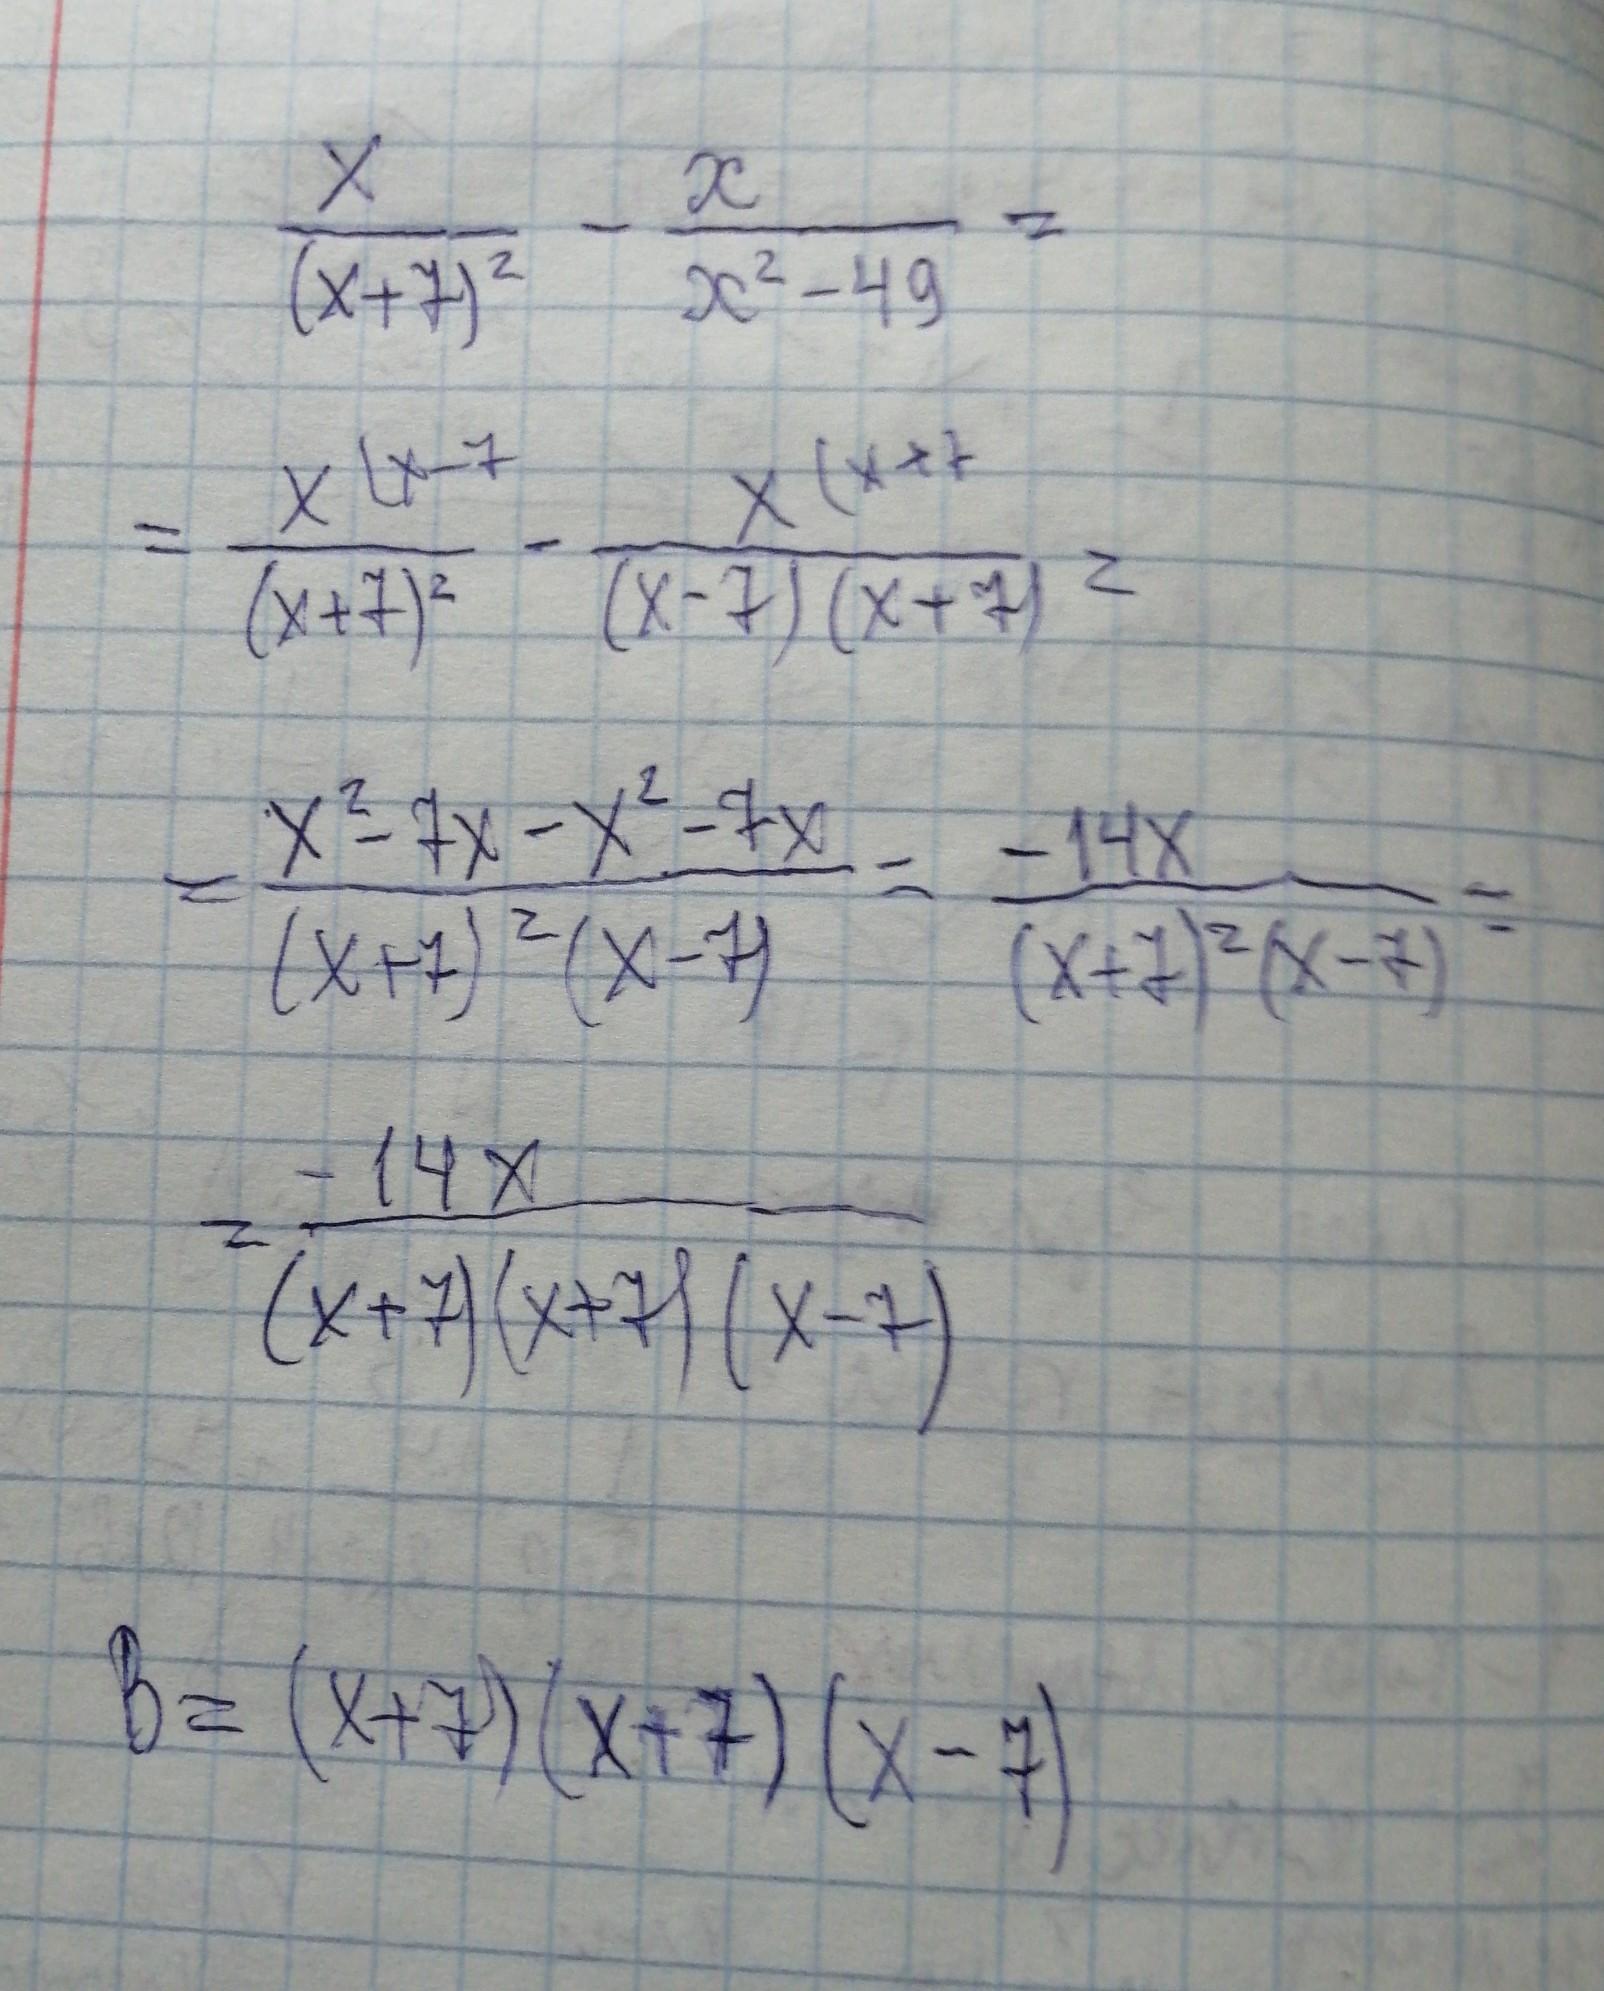 x/(x+7)² - x/(x²-49) =
= x (x-7 /(x+7)² - x (x+7 /(x-7)(x+7) =
= (x²-7x-x²-7x)/((x+7)²(x-7)) = -14x/((x+7)²(x-7)) =
= -14x/((x+7)(x+7)(x-7))
B=(x+7)(x+7)(x-7)